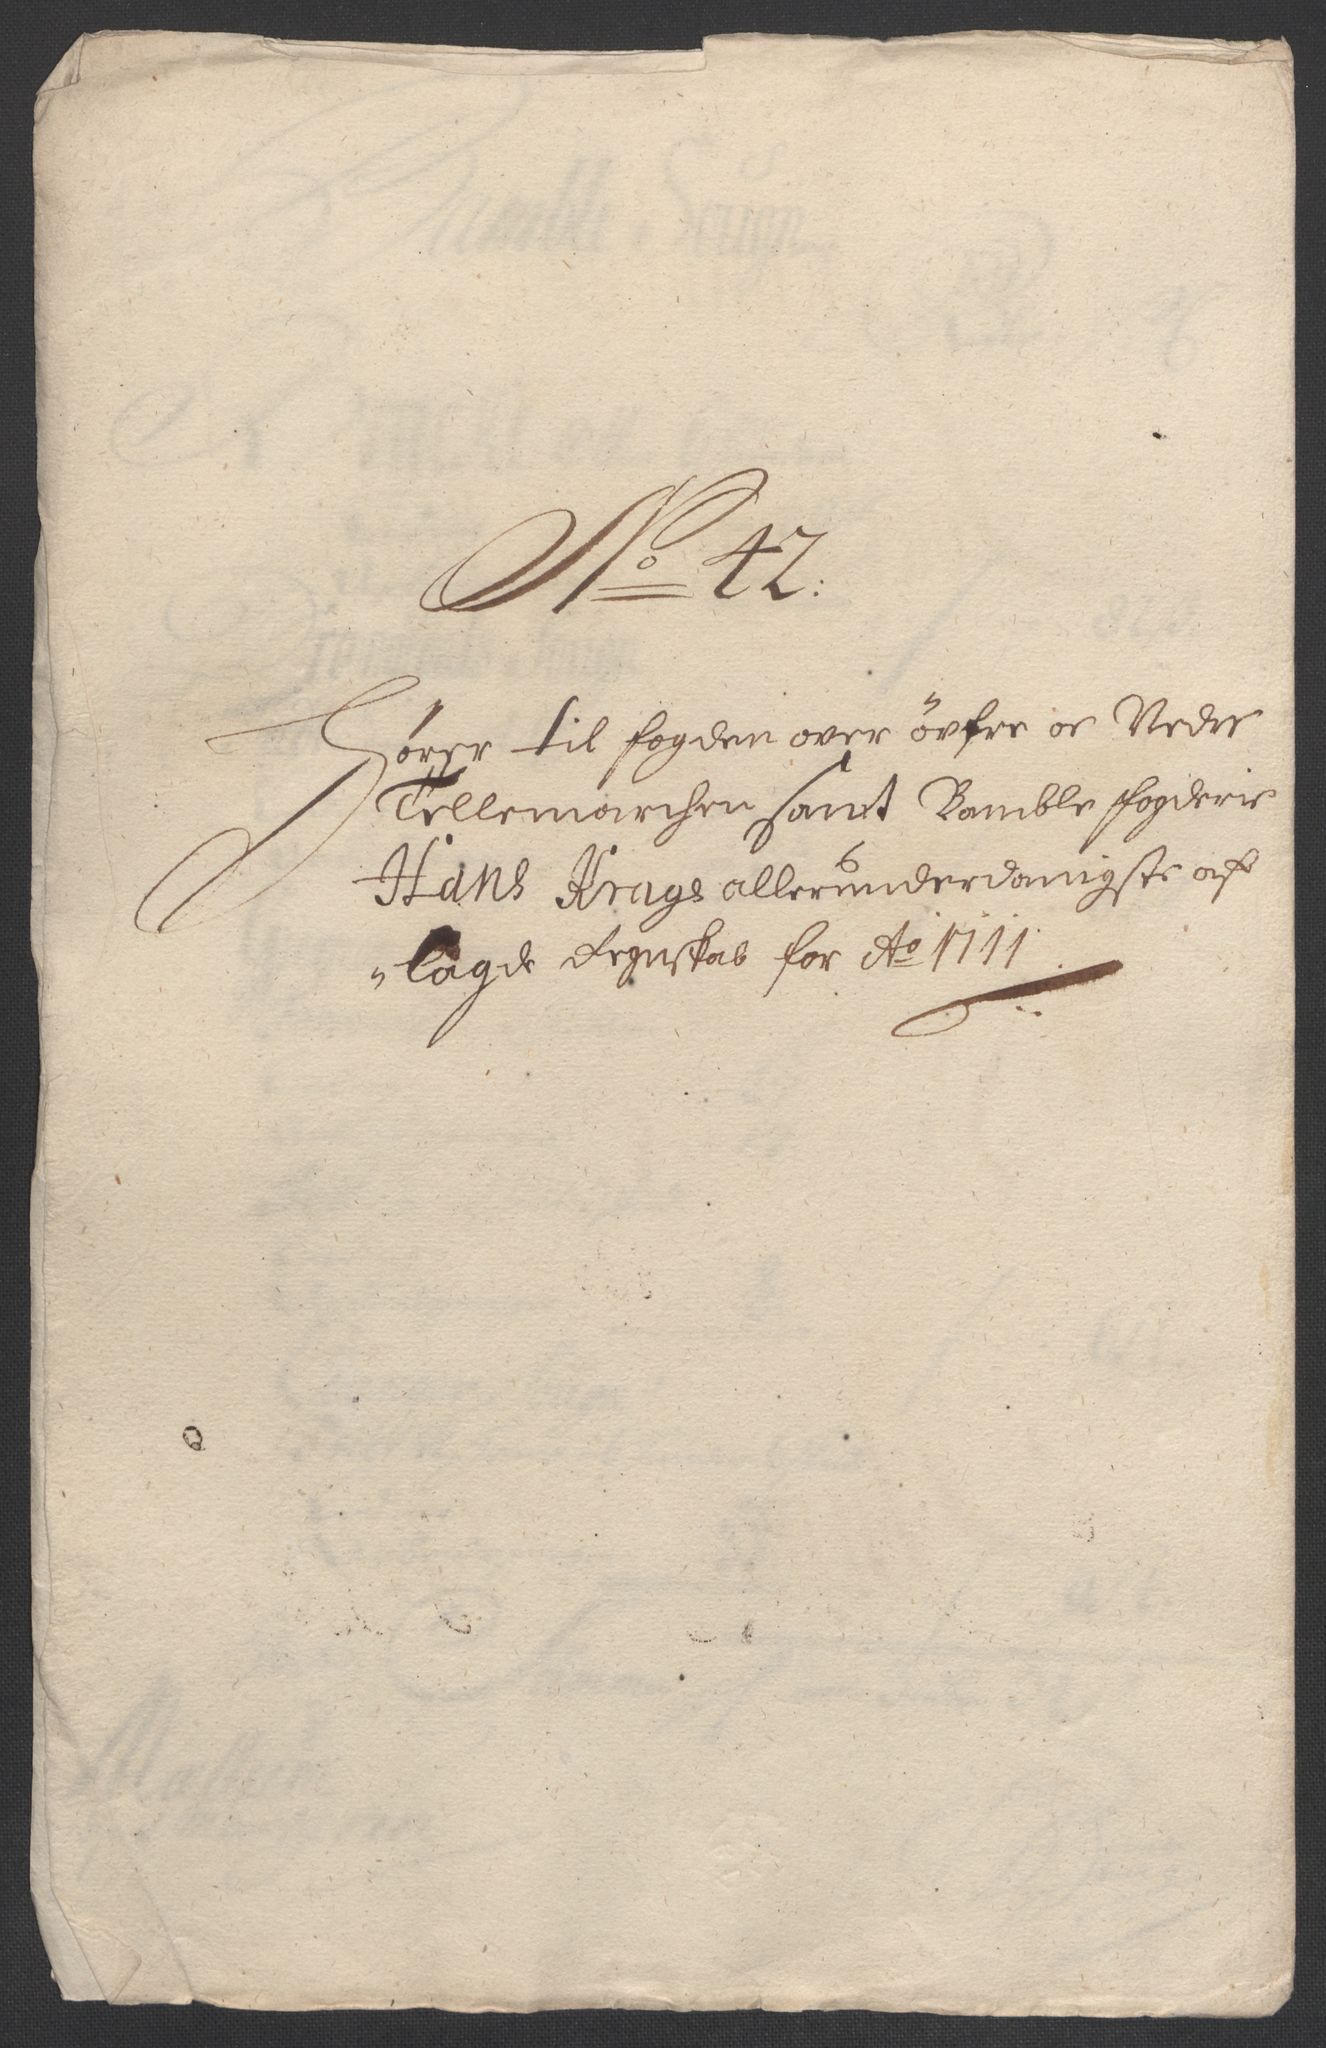 No 42:
Hörer til fogden over öofre oc Nedre
Tellemarchen samt Bamble fogderie
Hans Krags allerunderdanigste af
„lagde Regnskab for Ao 1711